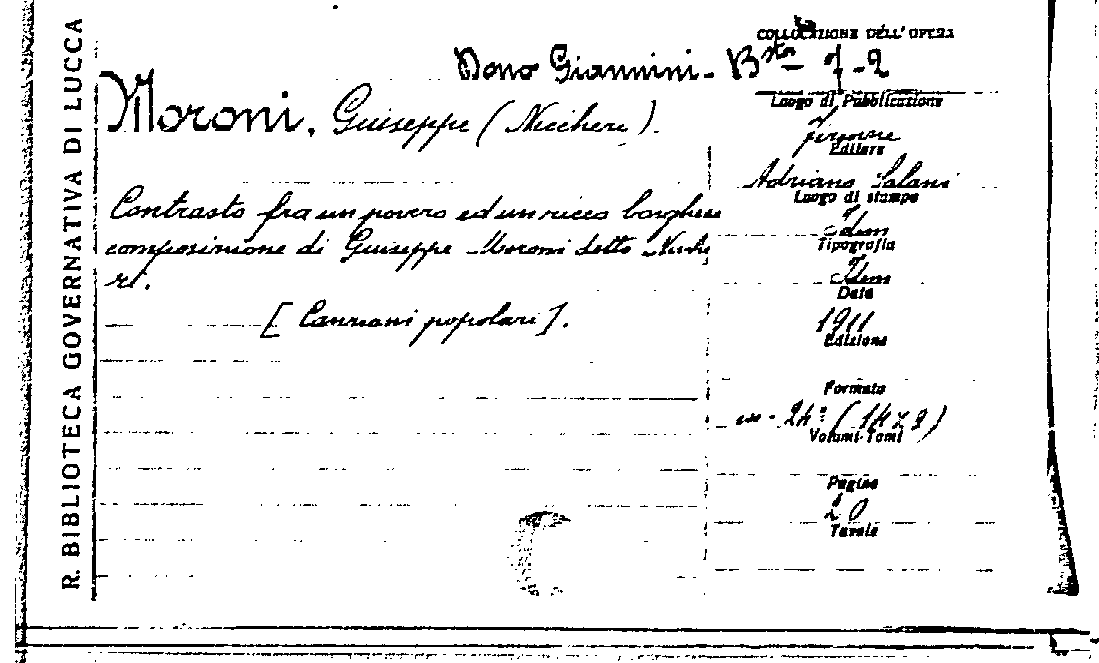 R. BIBLIOTECA GOVERNATIVA DI LUCCA
COLLOCAZIONE DELL'OPERA
Dono Giannini - B sta 7-2
Moroni, Giuseppe (Niccheri).
Contrasto fra un povero ed un ricco borghese
composizione di Giuseppe Moroni detto Nicche
ri.
[Canzoni popolari].
Luogo di Pubblicazione
Firenze
Editore
Adriano Salani
Luogo di stampa
Idem
Tipografia
Idem
Data
1911
Edizione
Formato
in - 24° (14x9)
Volumi-Tomi
Pagine
20
Tavole